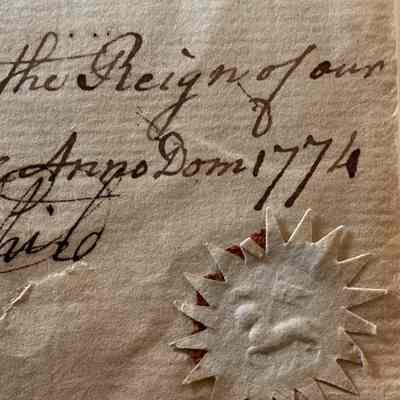 the Reign of our
Anno Dom 1774
hird